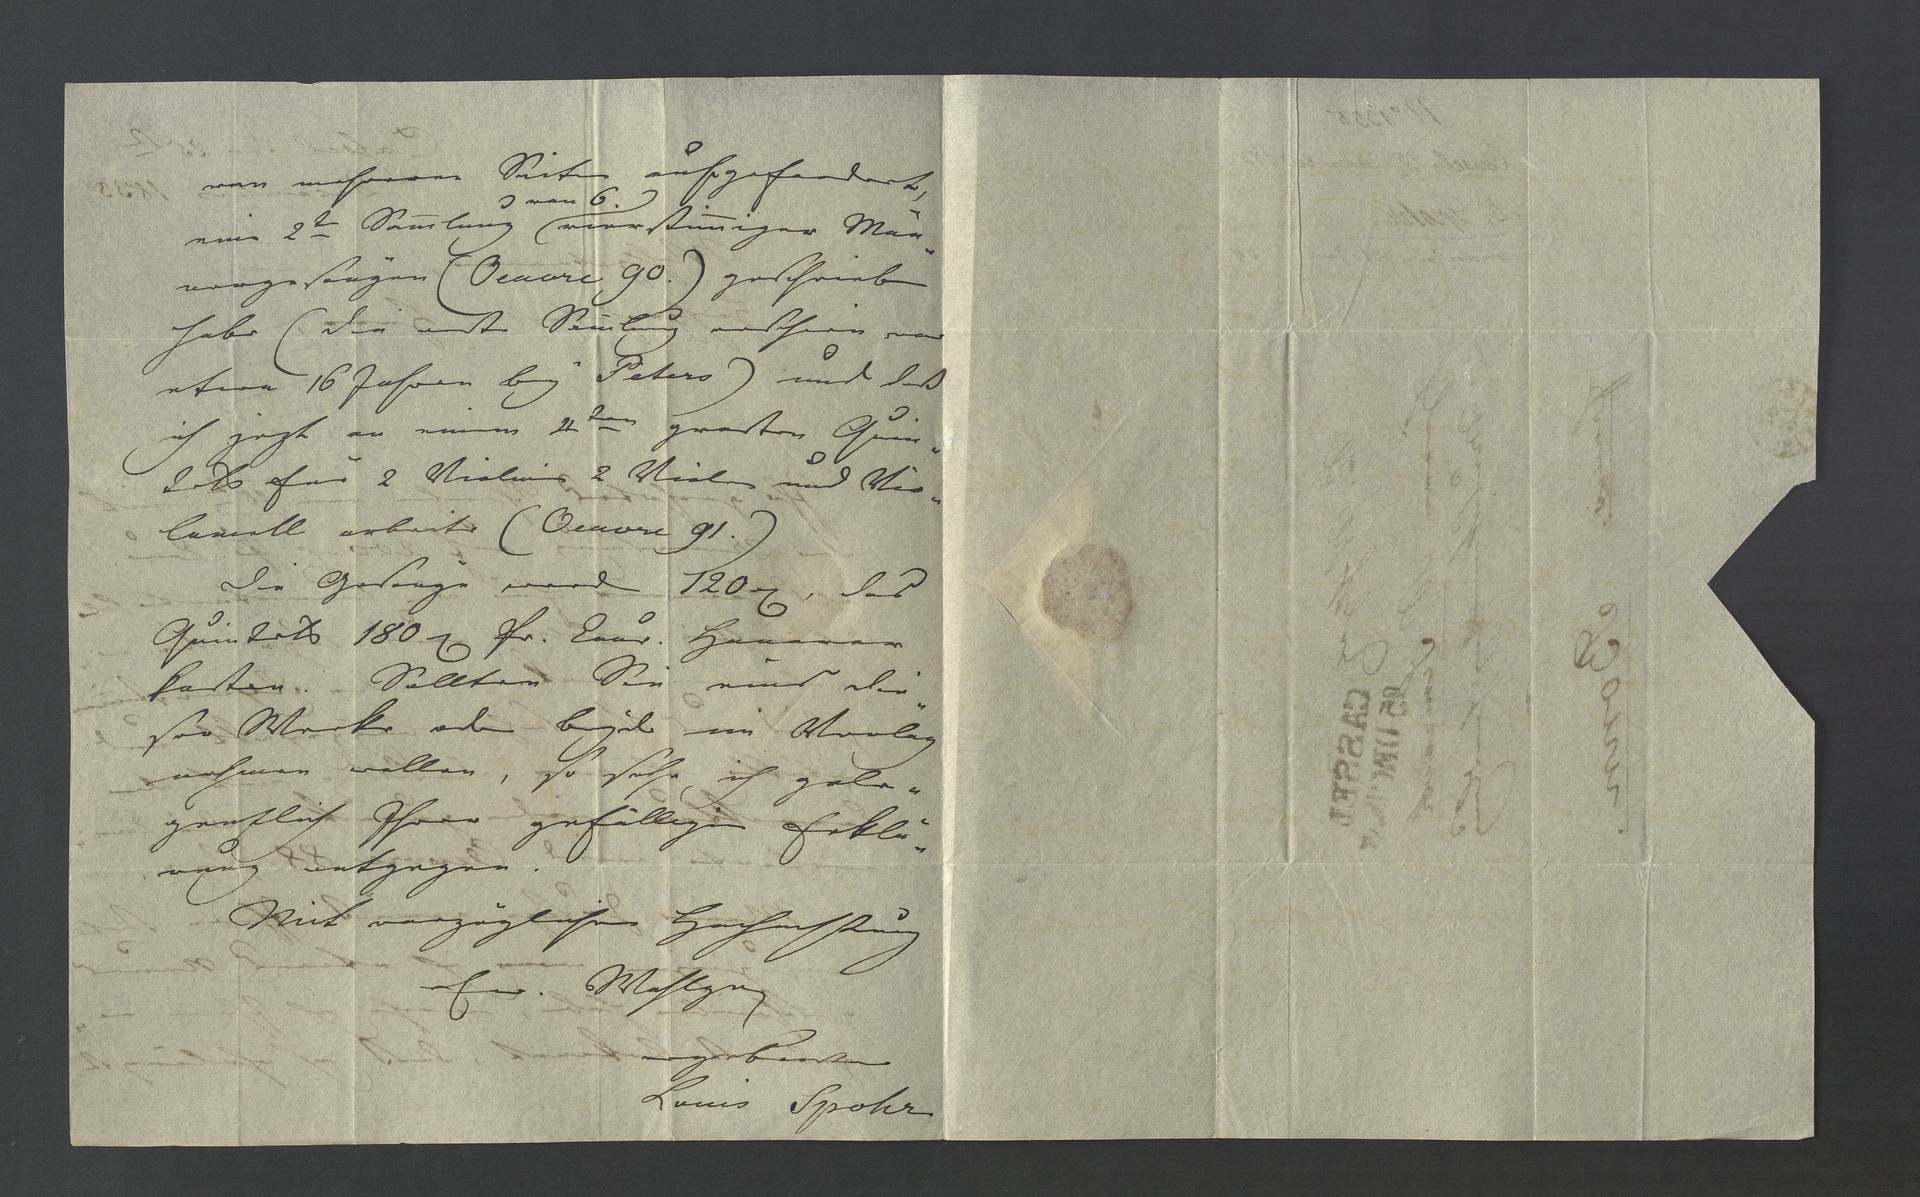 von mehreren Seiten aufgefordert,
eine 2te Samlung (von 6.) vierstimiger Män„
nergesänge (Oeuvre 90.) geschrieben
habe (die erste Samlung erschien vor
etwa 16 Jahren bey Peters) und daß
ich jezt an einem 4ten großen Quin„
tett für 2 Violinen 2 Violen und Vio„
loncell arbeite (Oeuvre 91.)
Die Gesänge werde 120 , das
Quintett 180 fr. Cour. Honorar
kosten. Sollten Sie eins die
ser Werke oder beyde in Verlag
nehmen wollen, so sehe ich gele„
gentlich Ihrer gefälligen Erklä„
rung entgegen.
Mit vorzüglicher Hochachtung
Ew. Wohlgeb
ergebenster
Louis Spohr
CASSEL
Bonn